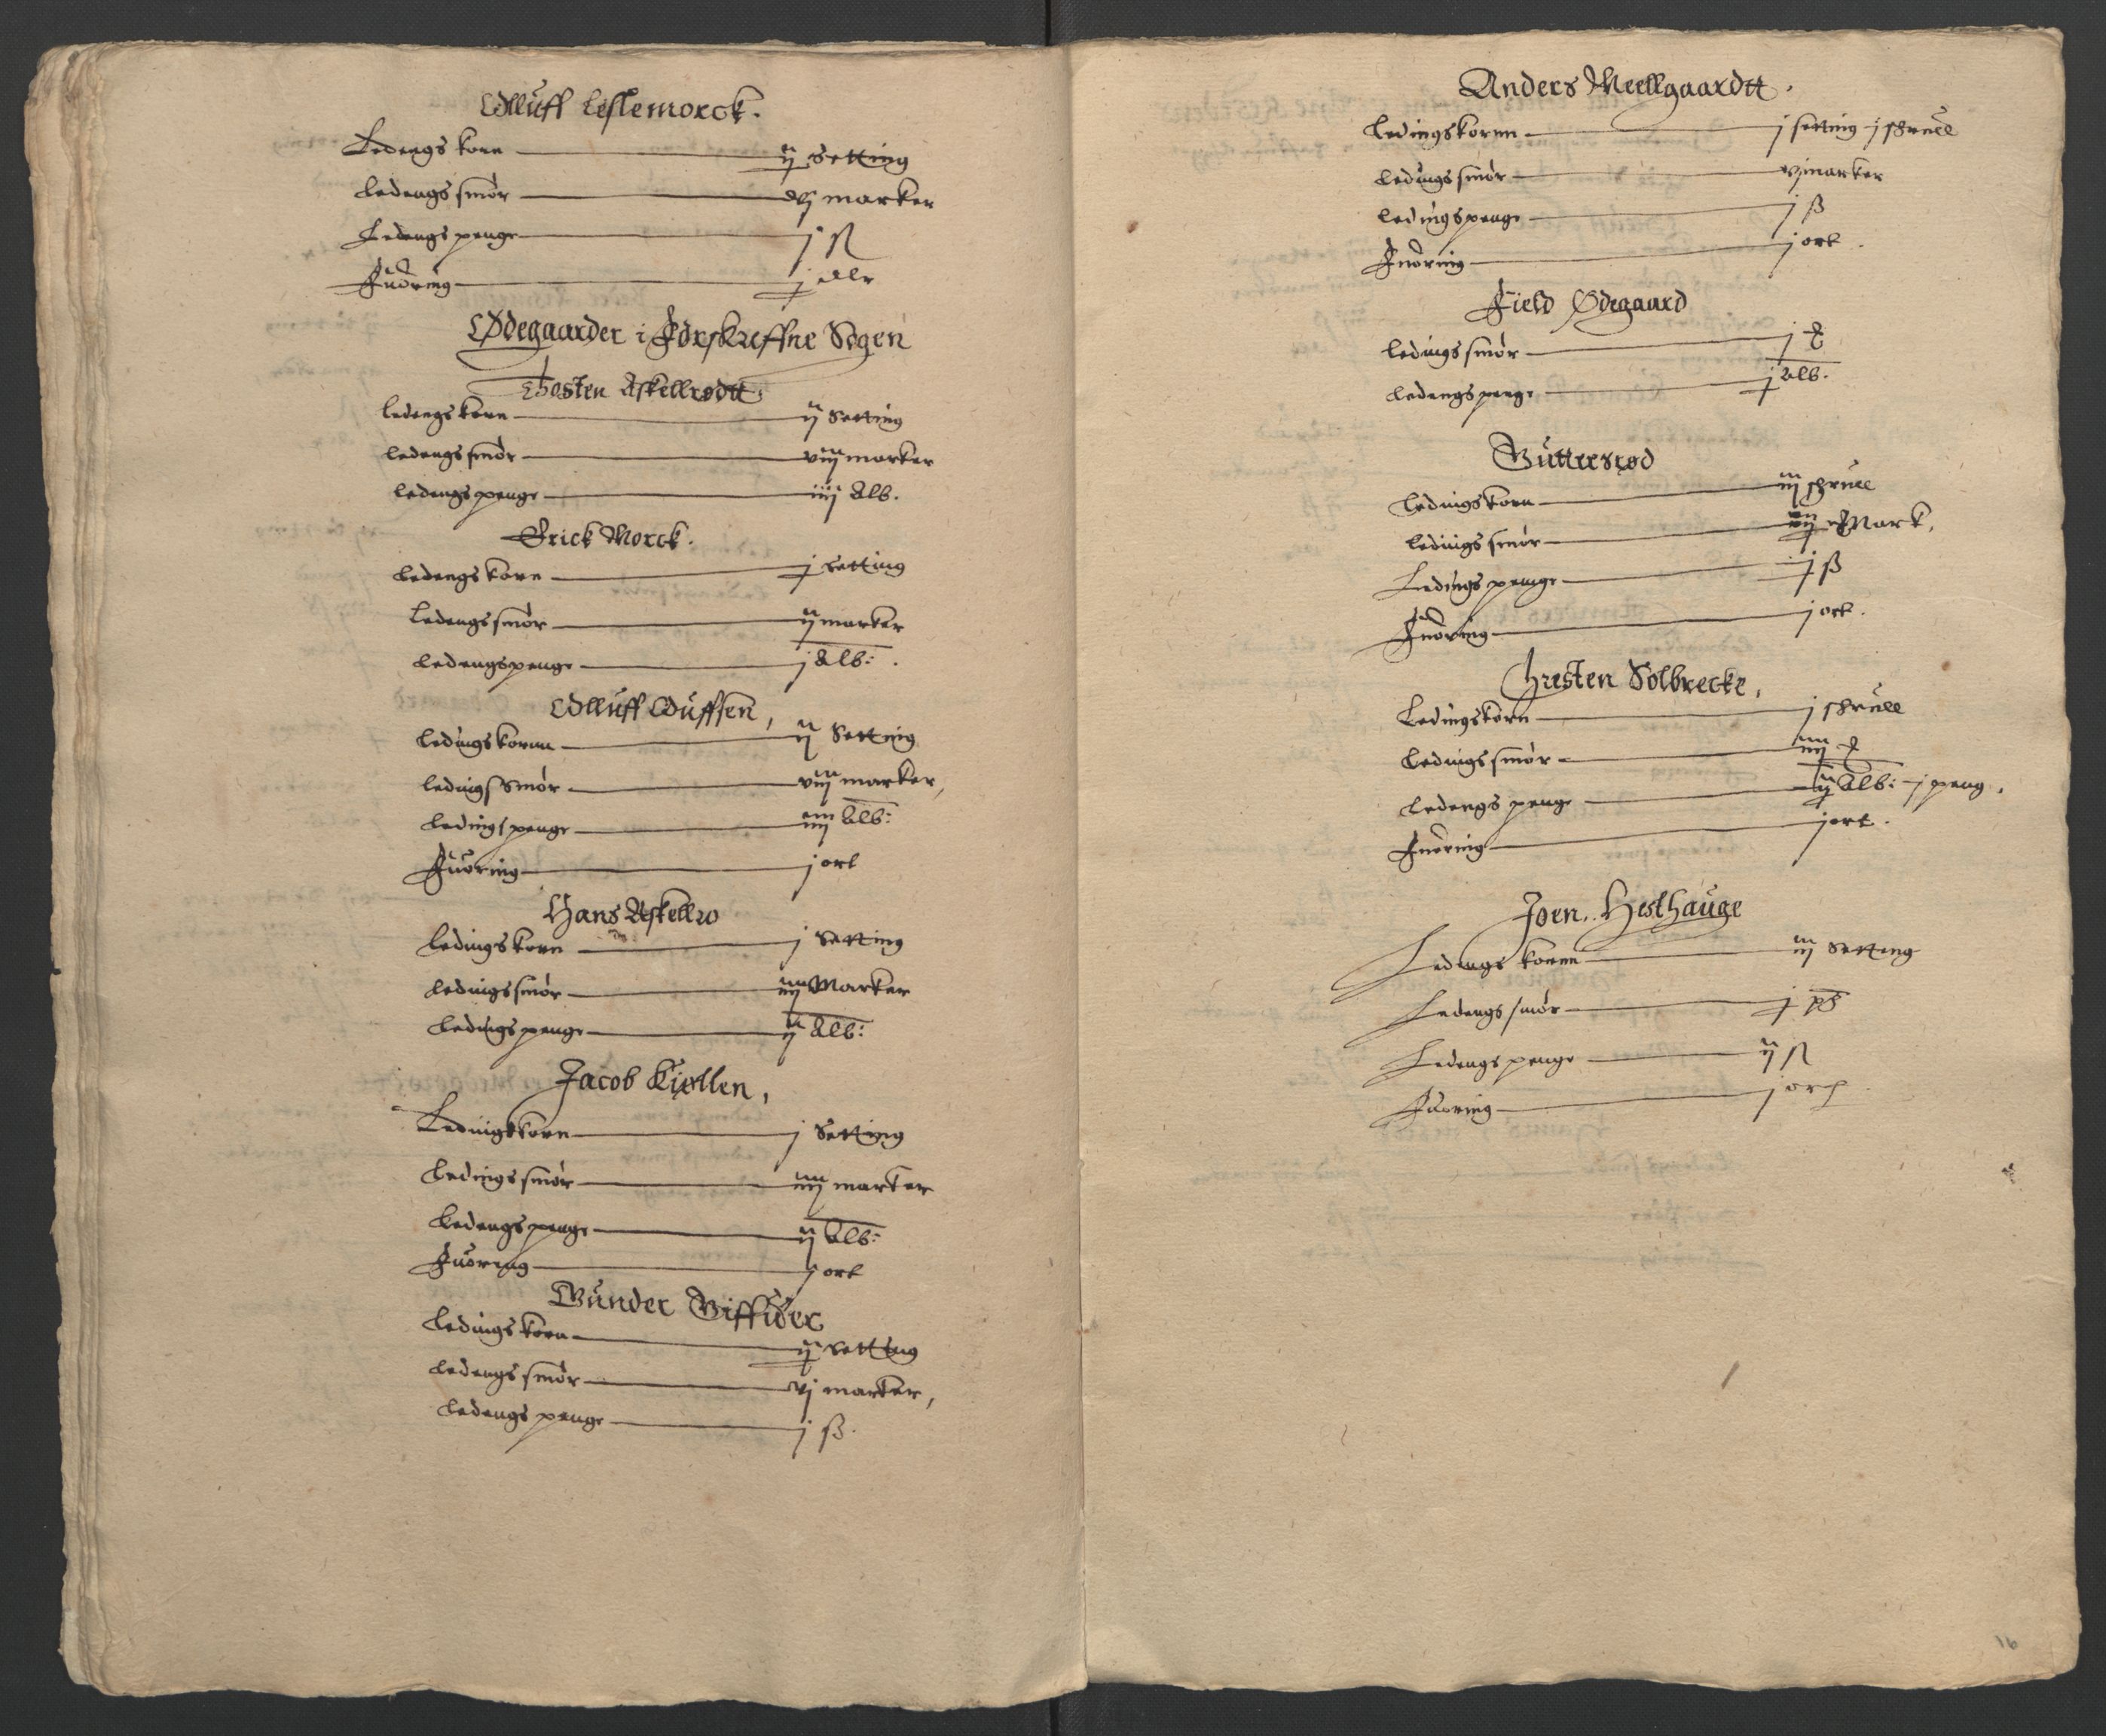 Olluff Leslemorck.
Ledengs korn — ij Setting
Ledengs smör — vj marker
Ledengs penge — j ß
Fuöring — j
Ødegaarder i Forskreffne Sogen
Thosten Askellrødtt
Ledengs korn — ij Setting
Ledengs smör — viij marker
Ledengs penge — iiij Alb.
Erick Morck.
Ledengs korn — j setting
Ledengs smör — ij marker
Ledengs penge — j Alb:
Olluff Ouffsen,
Ledings kornn — ij Setting
Ledings Smör — viij marker,
Ledings penge — iiij Alb:
Fuöring — j ort
Hans Askellrø
Ledings korn — j Setting
Ledings smör — iiij Marker
Ledings penge — ij Alb:
Jacob Kiøllen,
Ledingkkorn — j Setting
Ledings smör — iiij marker
Ledengs penge — ij Alb:
Fuöring — j ort
Gunder
Ledings korn — ij setting
Ledengs smör — vj marker,
Ledengs penge — j ß.
Anders Meellgaardtt.
Ledingskornn — j setting j skruee
Ledings smör — vj marker
Ledings penge — j ß
Fuöring — j ort.
Field Ødegaard
Ledings smör — j
Ledengs penge — j Alb.
Guttersrød
Ledings korn — iij skruee
Ledings smör — Mark,
Ledings penge — j ß
Fuöring — j ort.
Chresten Solbrecke,
Ledings korn — j skruee
Ledings smör — iiij
Ledengs penge — ij Alb: j peng,
Fuöring — j ort.
Joen. Hesthauge
Ledengs kornn — iij Setting
Ledengs smör — j
Ledengs penge — ij ß
Fuoring — j ort
16